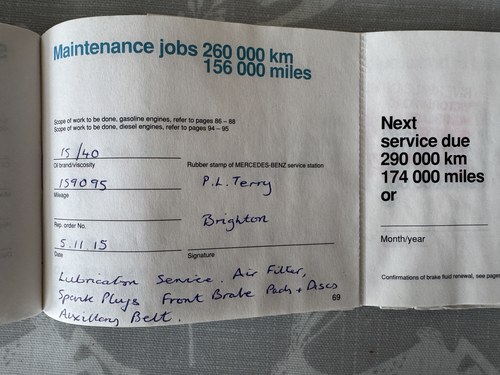 Maintenance jobs 260 000 km
156 000 miles
Scope of work to be done, gasoline engines, refer to pages 86 – 88
Scope of work to be done, diesel engines, refer to pages 94 – 95
15/40
Oil brand/viscosity
159095
Mileage
Rep. order No.
5.11.15
Date
Rubber stamp of MERCEDES-BENZ service station
P.L. Terry
Brighton
Signature
Lubrication Service. Air Filter,
Spark Plugs Front Brake Pads + Discs
Auxillary Belt.
69
Next
service due
290 000 km
174 000 miles
or
Month/year
Confirmations of brake fluid renewal, see page